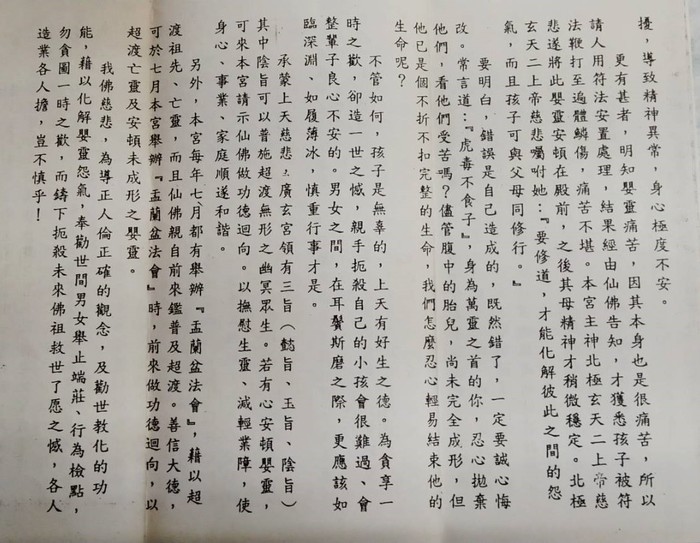 擾，導致精神異常，身心極度不安。
更有甚者，明知嬰靈痛苦，因其本身也是很痛苦，所以
請人用符法安置處理，結果經由仙佛告知，才獲悉孩子被符
法鞭打至遍體鱗傷，痛苦不堪。本宮主神北極玄天二上帝慈
悲遂將此嬰靈安頓在殿前，之後其母精神才稍微穩定。北極
玄天二上帝慈悲囑咐她：『要修道，才能化解彼此之間的怨
氣，而且孩子可與父母同修行。』
要明白，錯誤是自己造成的，既然錯了，一定要誠心悔
改。常言道：『虎毒不食子』，身為萬靈之首的你，忍心拋棄
他們，看他們受苦嗎？儘管腹中的胎兒，尚未完全成形，但
他已是個不折不扣完整的生命，我們怎麼忍心輕易結束他的
生命呢？
不管如何，孩子是無辜的，上天有好生之德。為貪享一
時之歡，卻造一世之憾，親手扼殺自己的小孩會很難過、會
整輩子良心不安的。男女之間，在耳鬢斯磨之際，更應該如
臨深淵、如履薄冰，慎重行事才是。
承蒙上天慈悲，廣玄宮領有三旨（懿旨、玉旨、陰旨）
其中陰旨可以普施超渡無形之幽冥眾生。若有心安頓嬰靈，
可來本宮請示仙佛做功德迴向。以撫慰生靈、減輕業障，使
身心、事業、家庭順遂和諧。
另外，本宮每年七月都有舉辦『盂蘭盆法會』，藉以超
渡祖先、亡靈，而且仙佛親自前來鑑普及超渡。善信大德，
可於七月本宮舉辦『盂蘭盆法會』時，前來做功德迴向，以
超渡亡靈及安頓未成形之嬰靈。
我佛慈悲，為導正人倫正確的觀念，及勸世教化的功
能，藉以化解嬰靈怨氣，奉勸世間男女舉止端莊、行為檢點，
勿貪圖一時之歡，而鑄下扼殺未來佛祖救世了愿之憾，各人
造業各人擔，豈不慎乎！